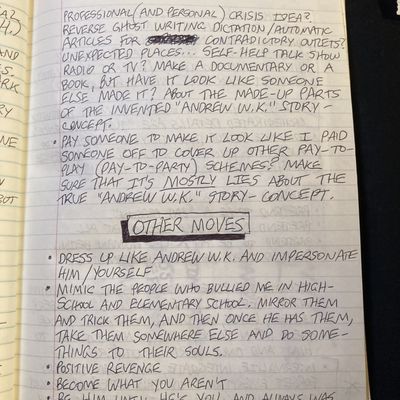 PROFESSIONAL (AND PERSONAL) CRISIS IDEA?
REVERSE GHOST WRITING DICTATION/AUTOMATIC
ARTICLES FOR CONTRADICTORY OUTLETS?
UNEXPECTED PLACES... SELF-HELP TALK SHOW
RADIO OR TV? MAKE A DOCUMENTARY OR A
BOOK, BUT HAVE IT LOOK LIKE SOMEONE
ELSE MADE IT? ABOUT THE MADE-UP PARTS
OF THE INVENTED "ANDREW W.K." STORY-
CONCEPT.
• PAY SOMEONE TO MAKE IT LOOK LIKE I PAID
SOMEONE OFF TO COVER UP OTHER PAY-TO-
PLAY (PAY-TO-PARTY) SCHEMES? MAKE
SURE THAT IT'S MOSTLY LIES ABOUT THE
TRUE "ANDREW W.K." STORY-CONCEPT.
OTHER MOVES
• DRESS UP LIKE ANDREW W.K. AND IMPERSONATE
HIM/YOURSELF
• MIMIC THE PEOPLE WHO BULLIED ME IN HIGH-
SCHOOL AND ELEMENTARY SCHOOL. MIRROR THEM
AND TRICK THEM, AND THEN ONCE HE HAS THEM,
TAKE THEM SOMEWHERE ELSE AND DO SOME-
THINGS TO THEIR SOULS.
• POSITIVE REVENGE
• BECOME WHAT YOU AREN'T
• BE HIM UNTIL HE'S YOU AND ALWAYS WAS